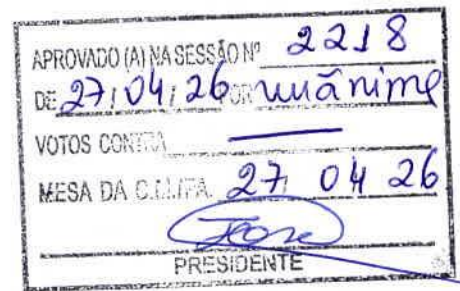 APROVADO (A) NA SESSÃO Nº 2218
DE 27/04/26 POR unânime
VOTOS CONTRA
MESA DA 27 04 26
PRESIDENTE